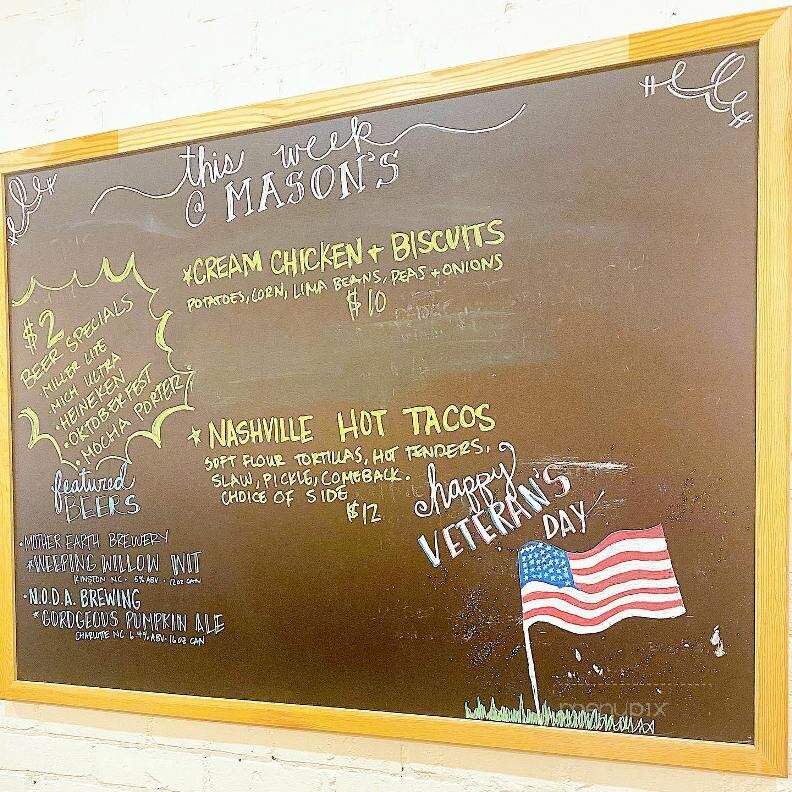 this week
@ MASON'S
*CREAM CHICKEN + BISCUITS
POTATOES, CORN, LIMA BEANS, PEAS + ONIONS
$10
$2
BEER SPECIALS
• MILLER LITE
• MICH ULTRA
• HEINEKEN
• OKTOBERFEST
• MOCHA PORTER
* NASHVILLE HOT TACOS
SOFT FLOUR TORTILLAS, HOT TENDERS,
SLAW, PICKLE, COMEBACK.
CHOICE OF SIDE
$12
featured
BEERS
• MOTHER EARTH BREWERY
*WEEPING WILLOW WIT
KINSTON NC • 5% ABV • 12OZ CAN
• N.O.D.A. BREWING
* GORDGEOUS PUMPKIN ALE
CHARLOTTE NC 6.4% ABV • 16 OZ CAN
happy
VETERAN'S
DAY
menupix